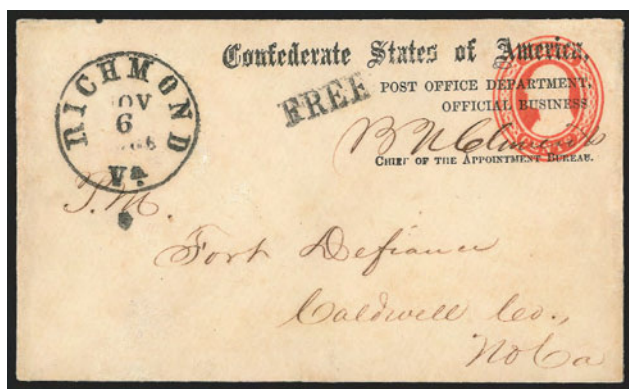 Confederate States of America.
POST OFFICE DEPARTMENT,
OFFICIAL BUSINESS
FREE
B N Clements
CHIEF OF THE APPOINTMENT BUREAU.
RICHMOND
OV
6
Va.
P.M.
Fort Defiance
Caldwell Co.,
No Ca